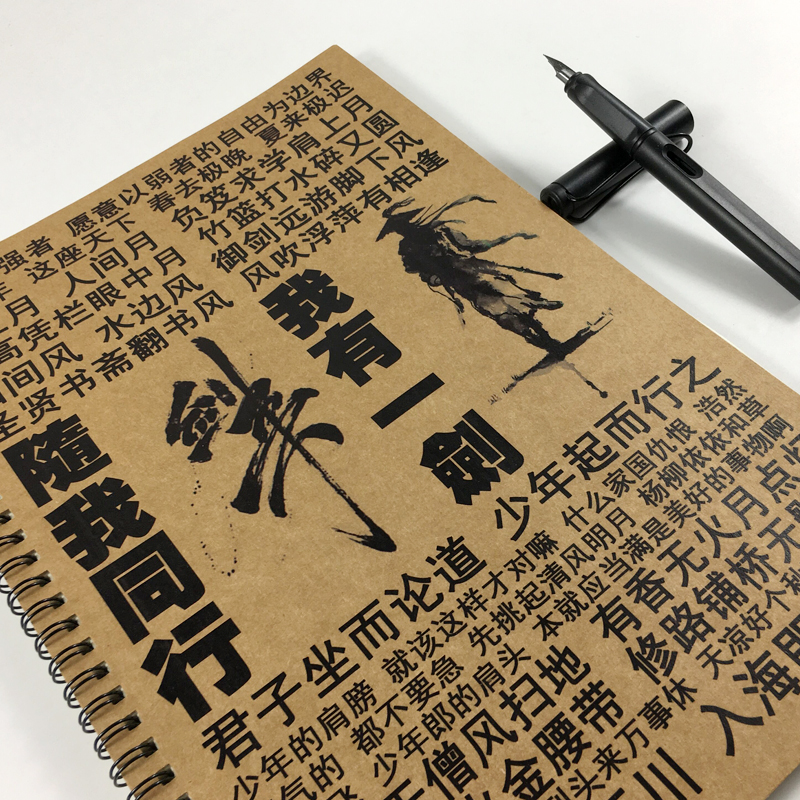 强者 愿意以弱者的自由为边界
这座天下 春去极晚 夏来极迟
月 人间月 负笈求学肩上月
高凭栏眼中月 竹篮打水碎又圆
间风 水边风 御剑远游脚下风
圣贤书斋翻书风 风吹浮萍有相逢
我有一劍
隨我同行
君子坐而论道 少年起而行之
少年的肩膀 就该这样才对嘛 什么家国仇恨 浩然
气的 都不要急 先挑起清风明月 杨柳依依和草
少年郎的肩头 本就应当满是美好的事物啊
僧风扫地 有香无火月点
金腰带 修路铺桥无
头来万事休 天凉好个
川 入海